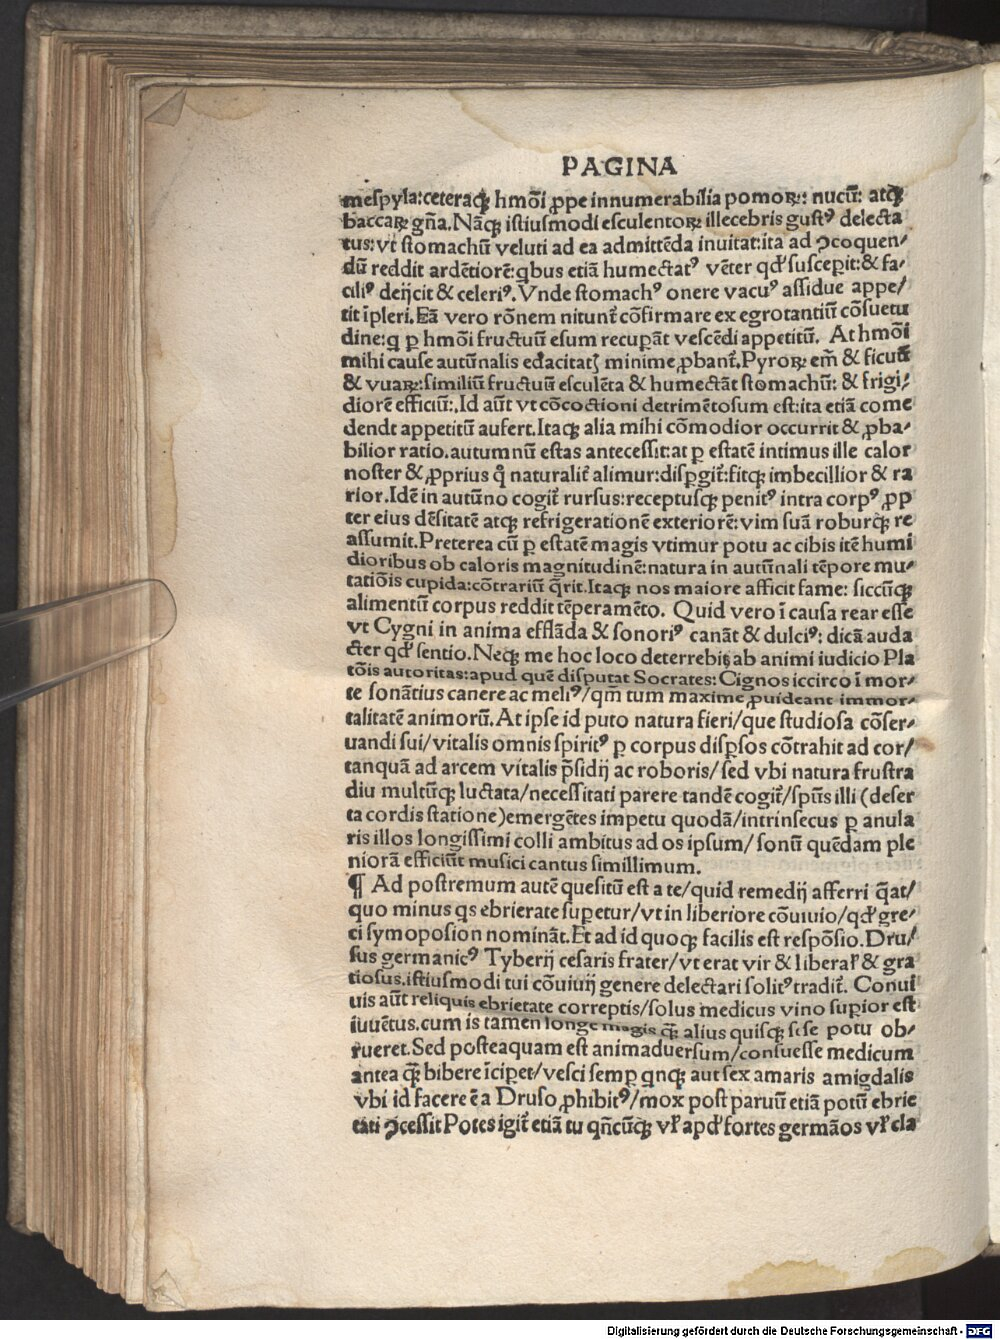 PAGINA
mespyla:ceteraq̃ hmõi ꝓpe innumerabilia pomoꝝ: nucũ: atq̃
baccaꝝ gña. Nãq̃ istiusmodi esculentoꝝ illecebris gustꝰ delecta
tus: vt stomachũ veluti ad ea admittẽda inuitat: ita ad ꝯcoquen/
dũ reddit ardẽtiorẽ: qbus etiã humectatꝰ vẽter qd' suscepit: & fa/
ciliꝰ deijcit & celeriꝰ. Vnde stomachꝰ onere vacuꝰ assidue appe/
tit ĩpleri. Eã vero rõnem nitunt̃ cõfirmare ex egrotantiũ cõsuetu
dine: q ꝑ hmõi fructuũ esum recuꝑãt vescẽdi appetitũ. At hmõi
mihi cause autũnalis edacitatꝭ minime ꝓbant̃. Pyroꝝ em̃ & ficuũ
& vuaꝝ: similiũ fructuũ esculẽta & humectãt stomachũ: & frigi/
diorẽ efficiũt. Id aũt vt cõcoctioni detrimẽtosum est: ita etiã come
dendi appetitũ aufert. Itaq̃ alia mihi cõmodior occurrit & ꝓba/
bilior ratio. autumnũ estas antecessit: at ꝑ estatẽ intimus ille calor
noster & ꝓprius q̃ naturalit̃ alimur: disꝑgit̃: fitq̃ imbecillior & ra
rior. Idẽ in autũno cogit̃ rursus: receptusq̃ penitꝰ intra corpꝰ ꝓp
ter eius dẽsitatẽ atq̃ refrigerationẽ exteriorẽ: vim suã roburq̃ re
assumit. Preterea cũ ꝑ estatẽ magis vtimur potu ac cibis itẽ humi
dioribus ob caloris magnitudinẽ: natura in autũnali tẽpore mu/
tatiõis cupida: cõtrariũ q̃rit. Itaq̃ nos maiore afficit fame: siccũq̃
alimentũ corpus reddit tẽperamẽto. Quid vero ĩ causa rear esse
vt Cygni in anima efflãda & sonoriꝰ canãt & dulciꝰ: dicã auda
cter qd' sentio. Neq̃ me hoc loco deterrebit ab animi iudicio Pla
tõis autoritas: apud quẽ disputat Socrates: Cignos iccirco ĩ mor/
te sonãtius canere ac meliꝰ/qm̃ tum maxime ꝓuideant immor/
talitatẽ animorũ. At ipse id puto natura fieri/que studiosa cõser/
uandi sui/vitalis omnis spiritꝰ ꝑ corpus disꝑsos cõtrahit ad cor/
tanquã ad arcem vitalis p̃sidij ac roboris/sed vbi natura frustra
diu multũq̃ luctata/necessitati parere tandẽ cogit̃/spũs illi (deser
ta cordis statione) emergẽtes impetu quodã/intrinsecus ꝑ anula
ris illos longissimi colli ambitus ad os ipsum/ sonũ quẽdam ple
niorã efficiũt musici cantus simillimum.
¶ Ad postremum autẽ quesitũ est a te/quid remedij afferri q̃at/
quo minus qs ebrietate supetur/vt in liberiore cõuiuio/qd' gre/
ci symoposion nominãt. Et ad id quoq̃ facilis est respõsio. Dru/
sus germanicꝰ Tyberij cesaris frater/vt erat vir & liberal' & gra
tiosus. istiusmodi tui cõuiuij genere delectari solitꝰ tradit̃. Conui
uis aũt reliquis ebrietate correptis/solus medicus vino suꝑior est
iuuẽtus. cum is tamen longe magis q̃ alius quisq̃ sese potu ob/
rueret. Sed posteaquam est animaduersum/consuesse medicum
antea q̃ bibere ĩciꝑet/vesci semꝑ qnq̃ aut sex amaris amigdalis
vbi id facere ẽ a Druso ꝓhibitꝰ/mox post paruũ etiã potũ ebrie
tati ꝯcessit Potes igit̃ etiã tu qñcũq̃ vl' apd' fortes germãos vl' cla
Digitalisierung gefördert durch die Deutsche Forschungsgemeinschaft - DFG